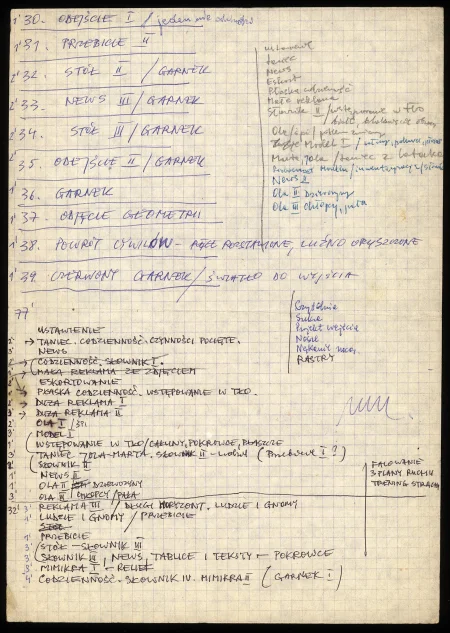 1' 30. ODEJŚCIE I / jeden nie
1' 31. PRZEBICIE II
2' 32. STÓŁ II / GARNEK
2' 33. NEWS III / GARNEK
1' 34. STÓŁ III / GARNEK
2' 35. ODEJŚCIE II / GARNEK
1' 36. GARNEK
1' 37. ODJĘCIE GEOMETRII
1' 38. POWRÓT CYWILÓW - RĘCE ROZSTAWIONE, LUŹNO
1' 39. CZERWONY GARNEK / ŚWIATŁO DO WYJŚCIA
77'
ustawienie
taniec
News
Eskort
Płaska
Mała reklama
Słownik II / wstępowanie w tło
Model I
Marta, Jola / taniec z
News II
Ola II Dziewczyny
Ola III chłopcy, pała
Czytelnia
Suknie
Projekt wejścia
RASTRY
USTAWIENIE
2' → TANIEC. CODZIENNOŚĆ. CZYNNOŚCI POCIĘTE.
2' NEWS
2' → CODZIENNOŚĆ, SŁOWNIK I.
→ MAŁA REKLAMA ZE ZDJĘCIEM
ESKORTOWANIE
→ PŁASKA CODZIENNOŚĆ. WSTĘPOWANIE W TŁO.
→ DUŻA REKLAMA I
→ DUŻA REKLAMA II
2' OLA I /
MODEL I
WSTĘPOWANIE W TŁO / CAŁUNY, POKROWCE, PŁASZCZE
3' TANIEC JOLA-MARTA. SŁOWNIK II - (Przebicie I?)
SŁOWNIK II
1' NEWS II
1' OLA II DZIEWCZYNY
3' OLA III CHŁOPCY / PAŁA
FALOWANIE
3 PLANY RUCHU
TRENING STRACHU
32' 3' REKLAMA III / DŁUGI HORYZONT. LUDZIE I GNOMY
1' LUDZIE I GNOMY / PRZEBICIE
STÓŁ
1' PRZEBICIE
3' STÓŁ - SŁOWNIK III
3' SŁOWNIK III, NEWS, TABLICE I TEKSTY - POKROWCE
3' MIMIKRA I - RELIEF
4' CODZIENNOŚĆ. SŁOWNIK IV. MIMIKRA II (GARNEK I)